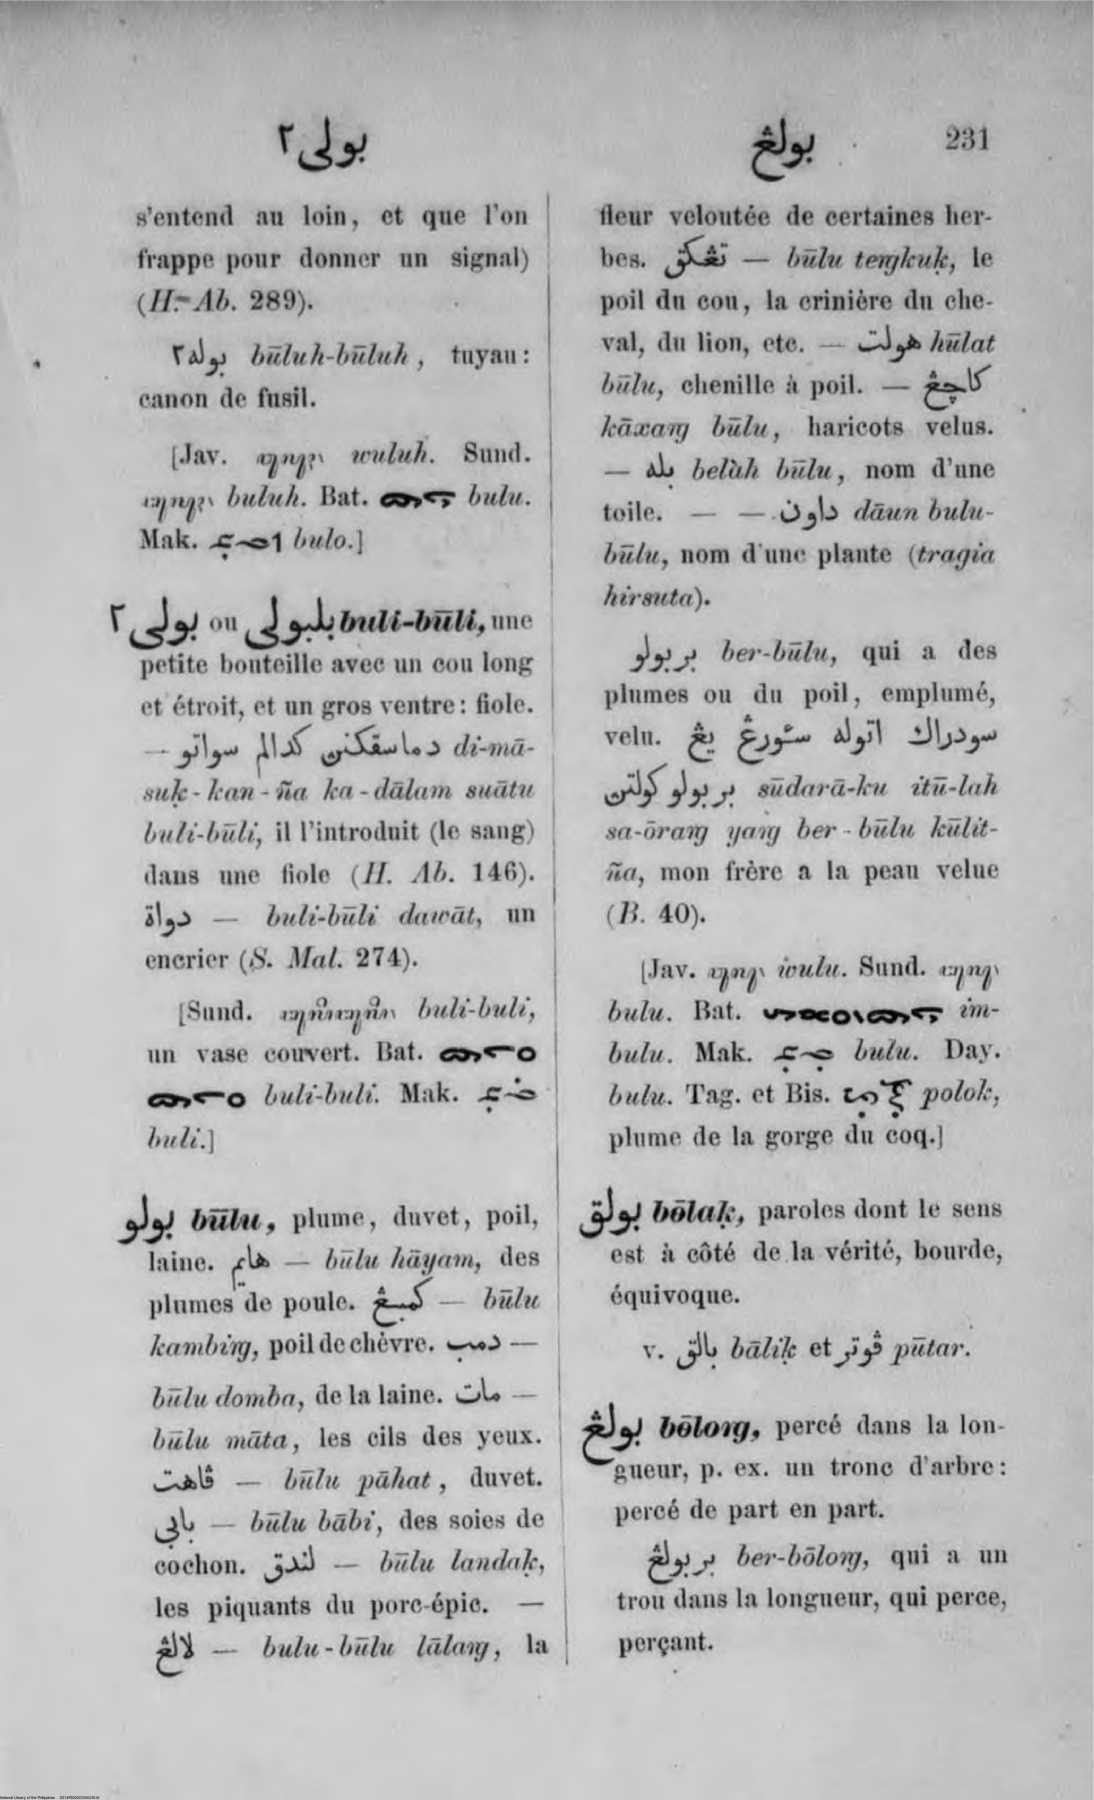 بولي٢
بولڠ 231
s'entend au loin, et que l'on
frappe pour donner un signal)
(H.-Ab. 289).
بوله٢ būluh-būluh, tuyau:
canon de fusil.
[Jav. wuluh. Sund.
buluh. Bat. bulu.
Mak. bulo.]
بولي٢ ou بلبولي buli-būli, une
petite bouteille avec un cou long
et étroit, et un gros ventre: fiole.
— دماسقكنن كدالم سواتو di-mā-
suḳ-kan-ña ka-dālam suātu
buli-būli, il l'introduit (le sang)
dans une fiole (H. Ab. 146).
دواة — buli-būli dawāt, un
encrier (S. Mal. 274).
[Sund. buli-buli,
un vase couvert. Bat.
buli-buli. Mak.
buli.]
بولو būlu, plume, duvet, poil,
laine. هايم — būlu hāyam, des
plumes de poule. كمبيڠ — būlu
kambiŋ, poil de chèvre. دمب —
būlu domba, de la laine. مات —
būlu māta, les cils des yeux.
ڤاهت — būlu pāhat, duvet.
بابي — būlu bābi, des soies de
cochon. لندق — būlu landaḳ,
les piquants du porc-épic. —
لالڠ — bulu-būlu lālaŋ, la
fleur veloutée de certaines her-
bes. تڠكق — būlu teŋkuḳ, le
poil du cou, la crinière du che-
val, du lion, etc. — هولت hūlat
būlu, chenille à poil. — كاچڠ
kāxaŋ būlu, haricots velus.
— بله belàh būlu, nom d'une
toile. — — داون dāun bulu-
būlu, nom d'une plante (tragia
hirsuta).
بربولو ber-būlu, qui a des
plumes ou du poil, emplumé,
velu. سودراك اتوله سئورڠ يڠ
بربولو كولتن sūdarā-ku itū-lah
sa-ōraŋ yaŋ ber-būlu kūlit-
ña, mon frère a la peau velue
(B. 40).
[Jav. wulu. Sund.
bulu. Bat. im-
bulu. Mak. bulu. Day.
bulu. Tag. et Bis. polok,
plume de la gorge du coq.]
بولق bōlaḳ, paroles dont le sens
est à côté de la vérité, bourde,
équivoque.
v. بالق bāliḳ et ڤوتر pūtar.
بولڠ bōloŋ, percé dans la lon-
gueur, p. ex. un tronc d'arbre:
percé de part en part.
بربولڠ ber-bōloŋ, qui a un
trou dans la longueur, qui perce,
perçant.